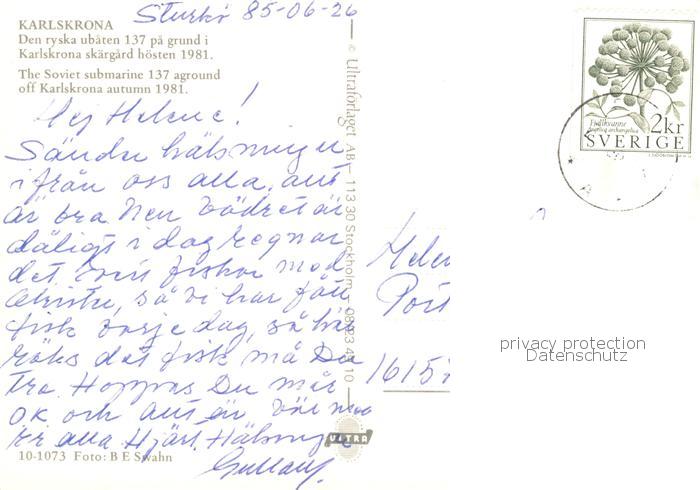 Sturkö 85-06-26
KARLSKRONA
Den ryska ubåten 137 på grund i
Karlskrona skärgård hösten 1981.
The Soviet submarine 137 aground
off Karlskrona autumn 1981.
Hej Helene!
Sänder hälsningen
ifrån oss alla, allt
är bra Men vädret är
dåligt i dag regnar
det fiskar med
så vi har fått
fisk varje dag, så här
röks det fisk må Du
tro. Hoppas Du mår
OK och allt är väl med
er alla Hjärt. Hälsningar
10-1073 Foto: B E Swahn
© Ultraförlaget AB - 113 30 Stockholm - 08/93 10
ULTRA
Fjällkvanne
2kr
SVERIGE
Helen
Post
1615
privacy protection
Datenschutz